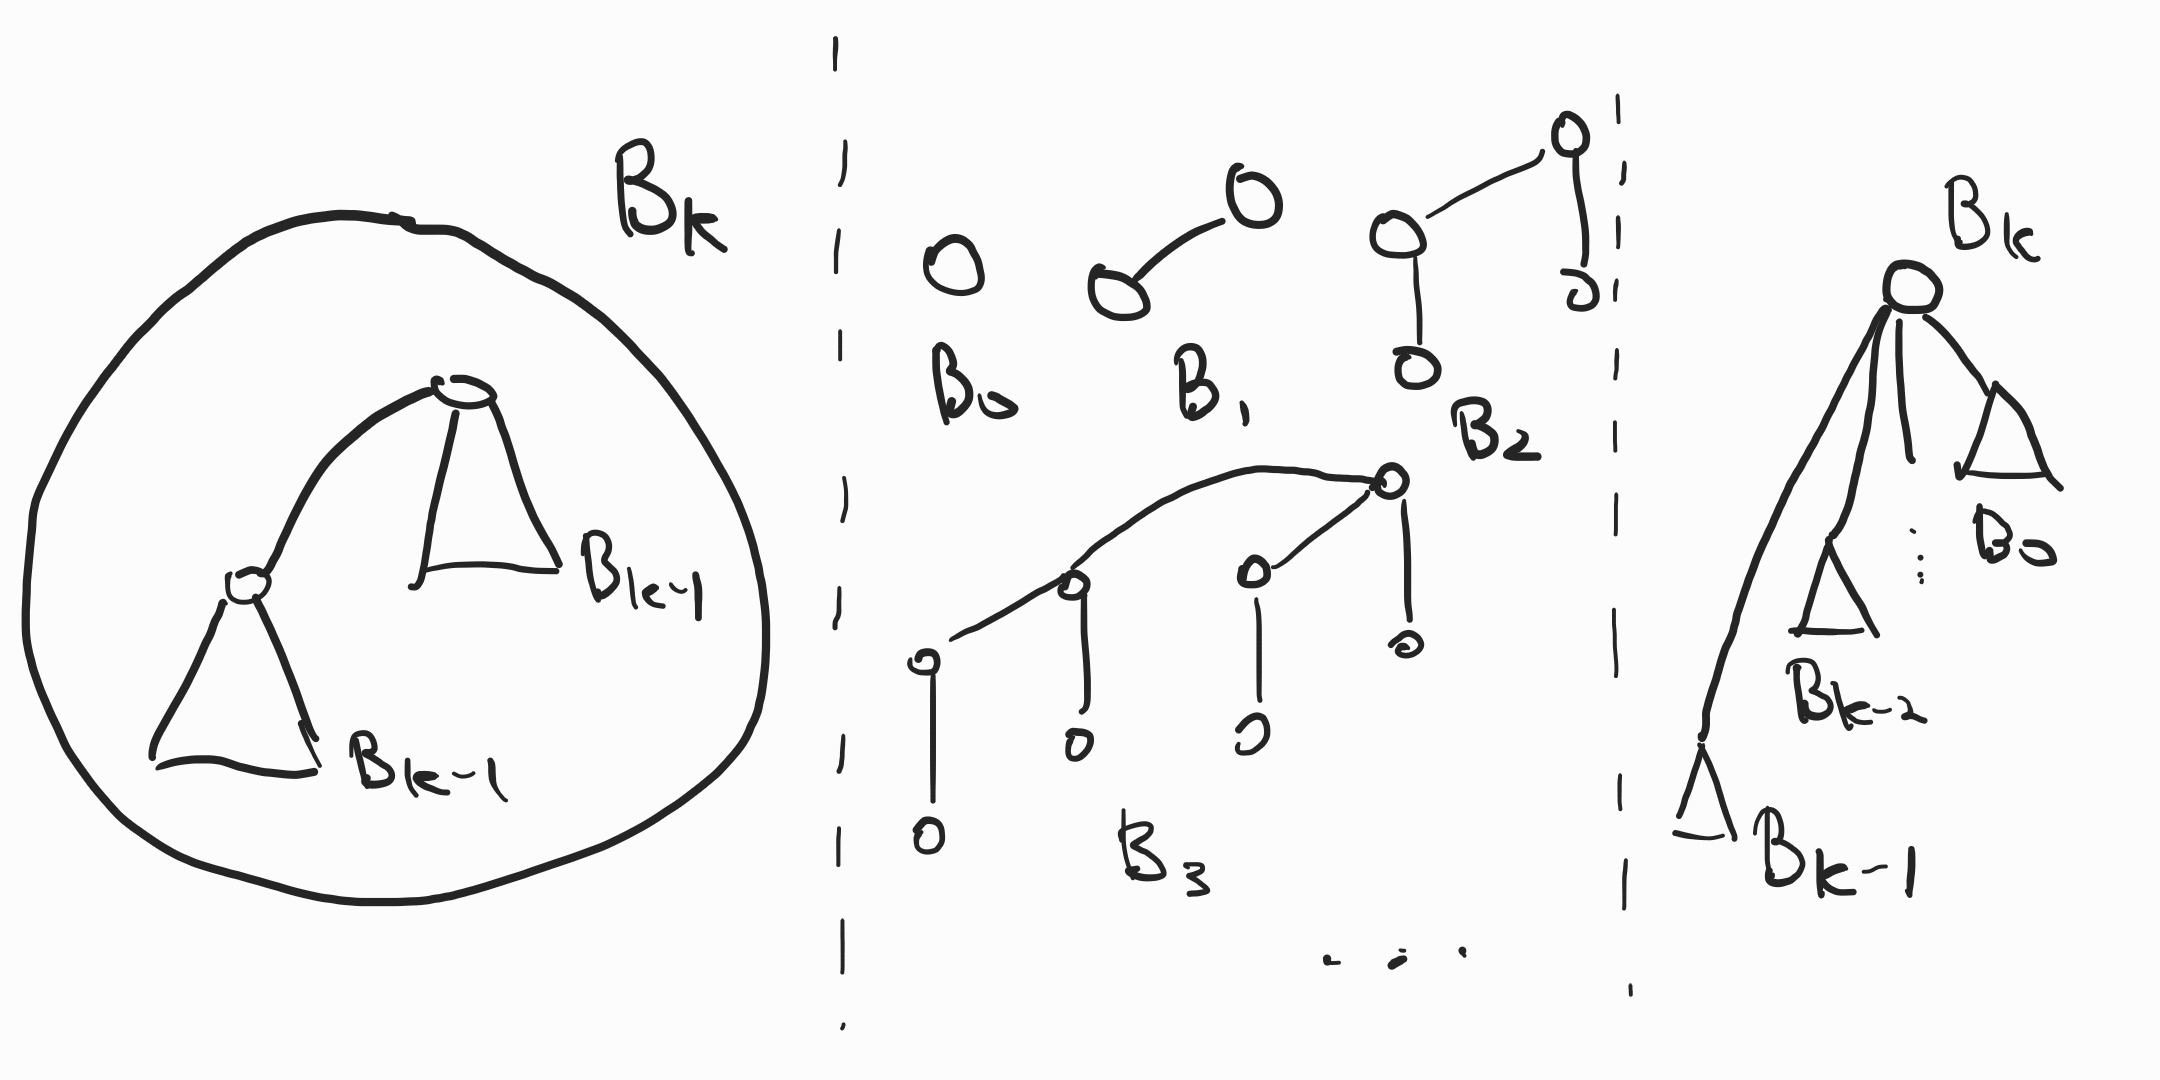 B_k
B_{k-1}
B_{k-1}
B_0
B_1
B_2
B_3
...
B_k
B_0
⋮
B_{k-2}
B_{k-1}